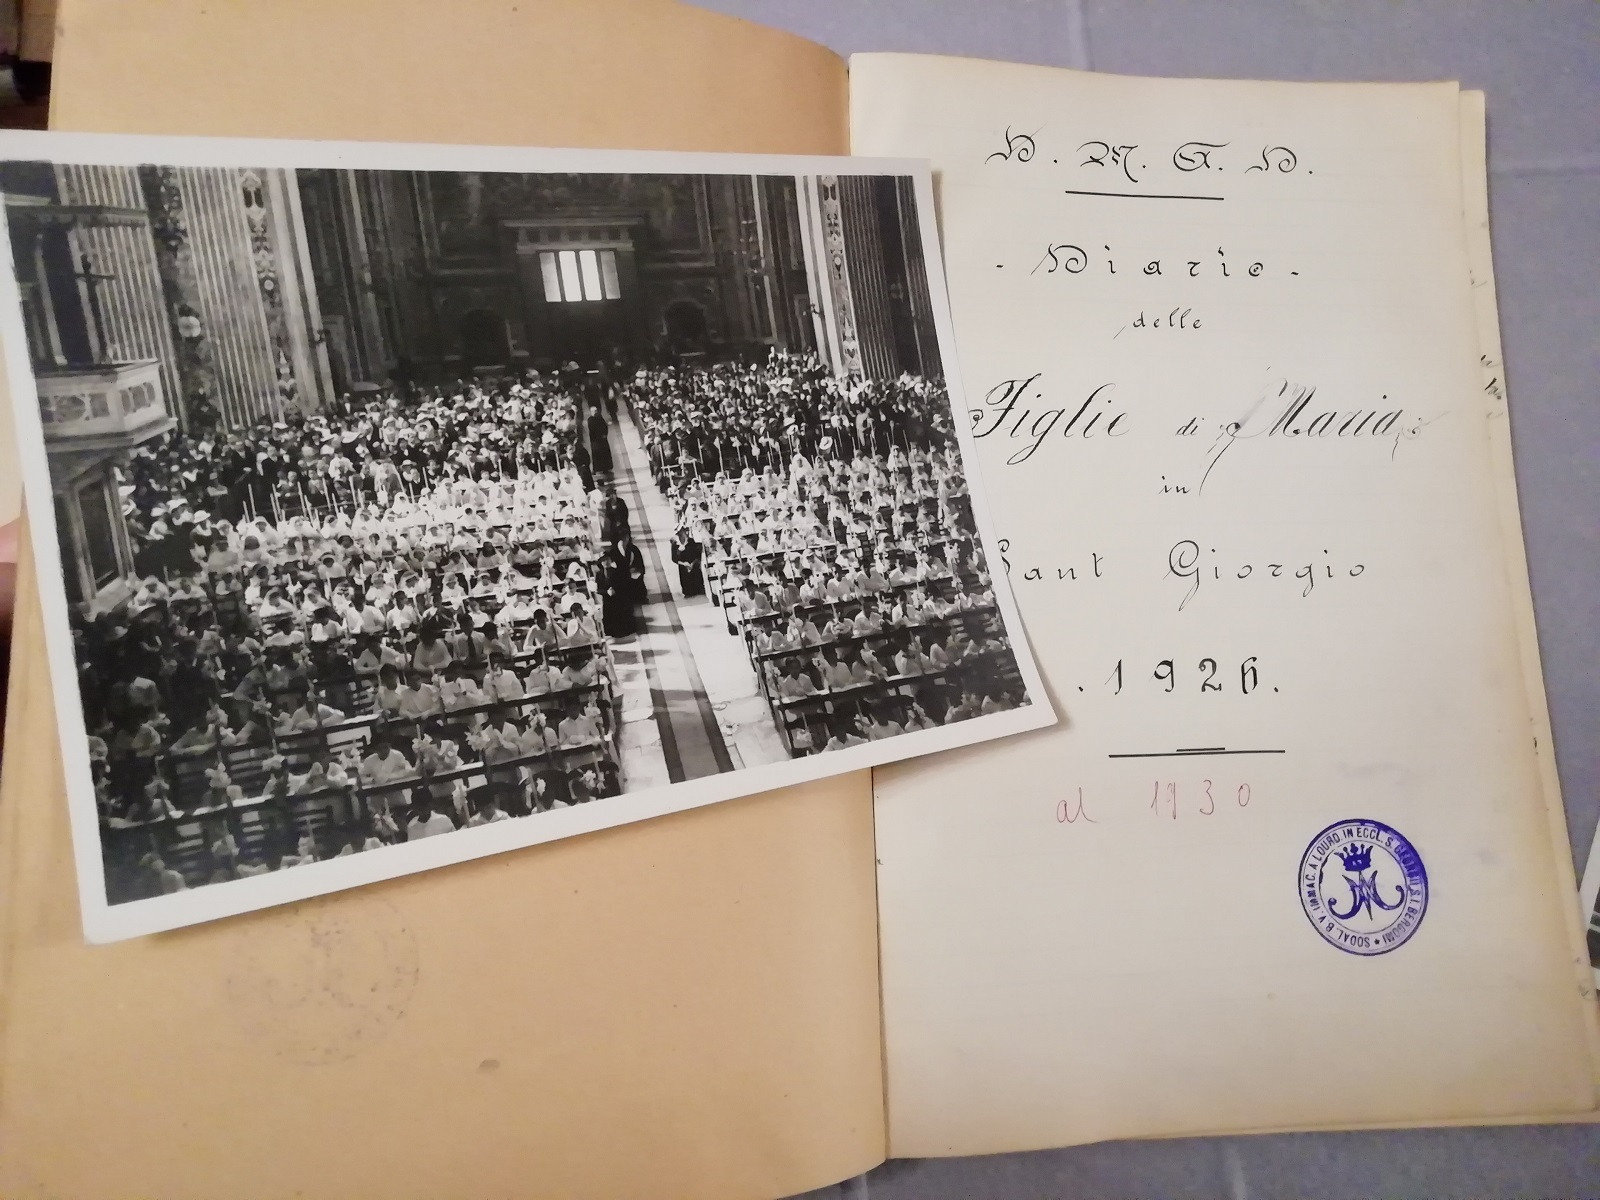 D. M. G. D.
- Diario -
delle
Figlie di Maria
in
Sant Giorgio
. 1926.
al 1930
SODAL. B. V. IMMAC. A LOURD. IN ECCL. S. GEORGII S. I. BERGOMI